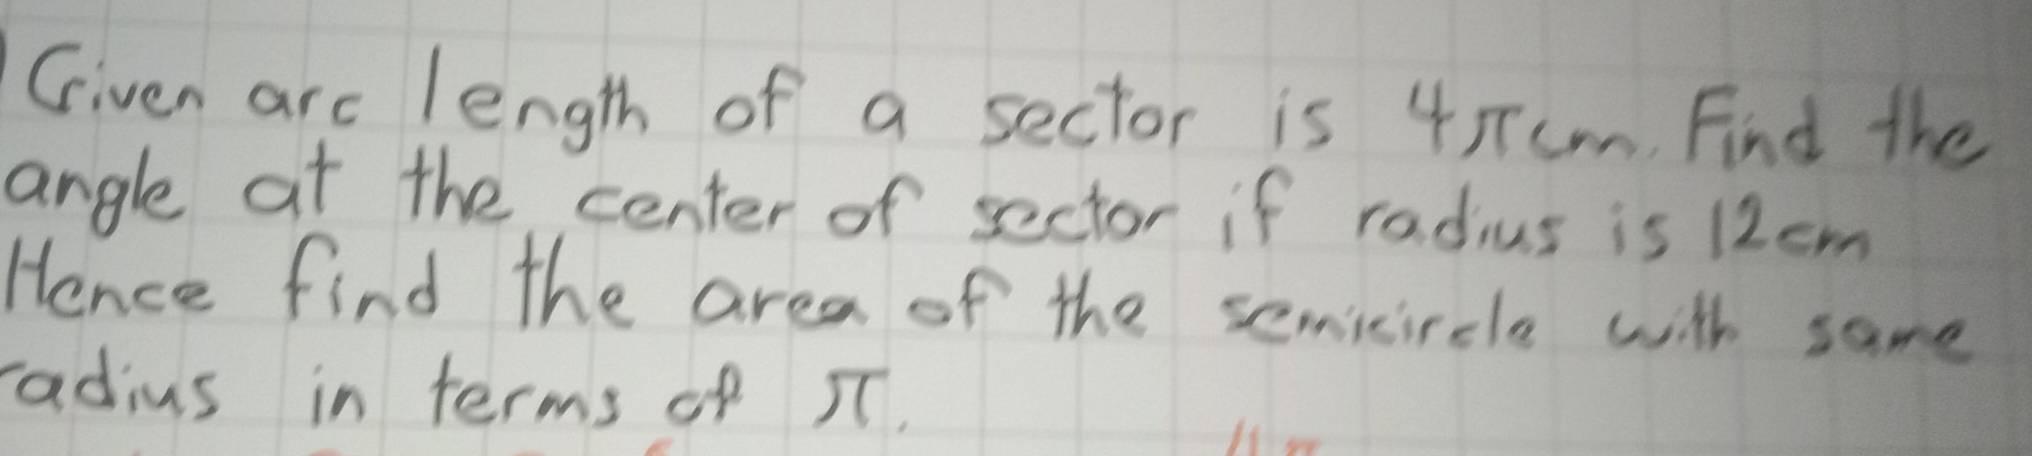 Given arc length of a sector is 4π cm. Find the
angle at the center of sector if radius is 12cm
Hence find the area of the semicircle with same
radius in terms of π.